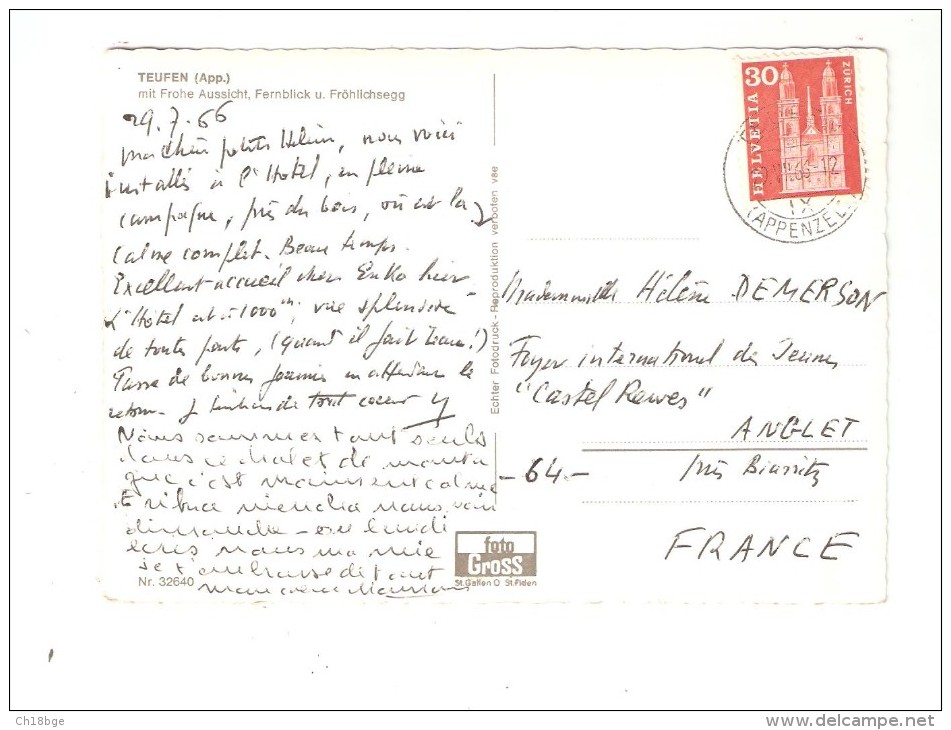 TEUFEN (App.)
mit Frohe Aussicht, Fernblick u. Fröhlichsegg
29.7.66
Ma chère petite Hélène, nous voici
installés à l'Hôtel, en pleine
campagne, près du bois, où est la
calme complet. Beau temps.
Excellent accueil chez Enko hier
L'Hôtel est à 1000m; vue splendide
de toutes parts, (quand il fait beau!)
Passe de bonnes journées en attendant le
retour. Je t'embrasse de tout coeur
Nous sommes tout seuls
dans ce chalet de
que c'est calme
viendra nous voir
dimanche - ou lundi
écris nous ma mie
Je t'embrasse de tout
mon coeur Maman
Nr. 32640
Echter Fotodruck - Reproduktion verboten vae
foto
Gross
St. Gallen O St. Fiden
HELVETIA 30 ZÜRICH
VII.66-12
IX
(APPENZELL
Mademoiselle Hélène DEMERSON
Foyer international des Jeunes
"Castel Rewes"
ANGLET
-64.-
près Biarritz
FRANCE
Ch18bge
www.delcampe.net